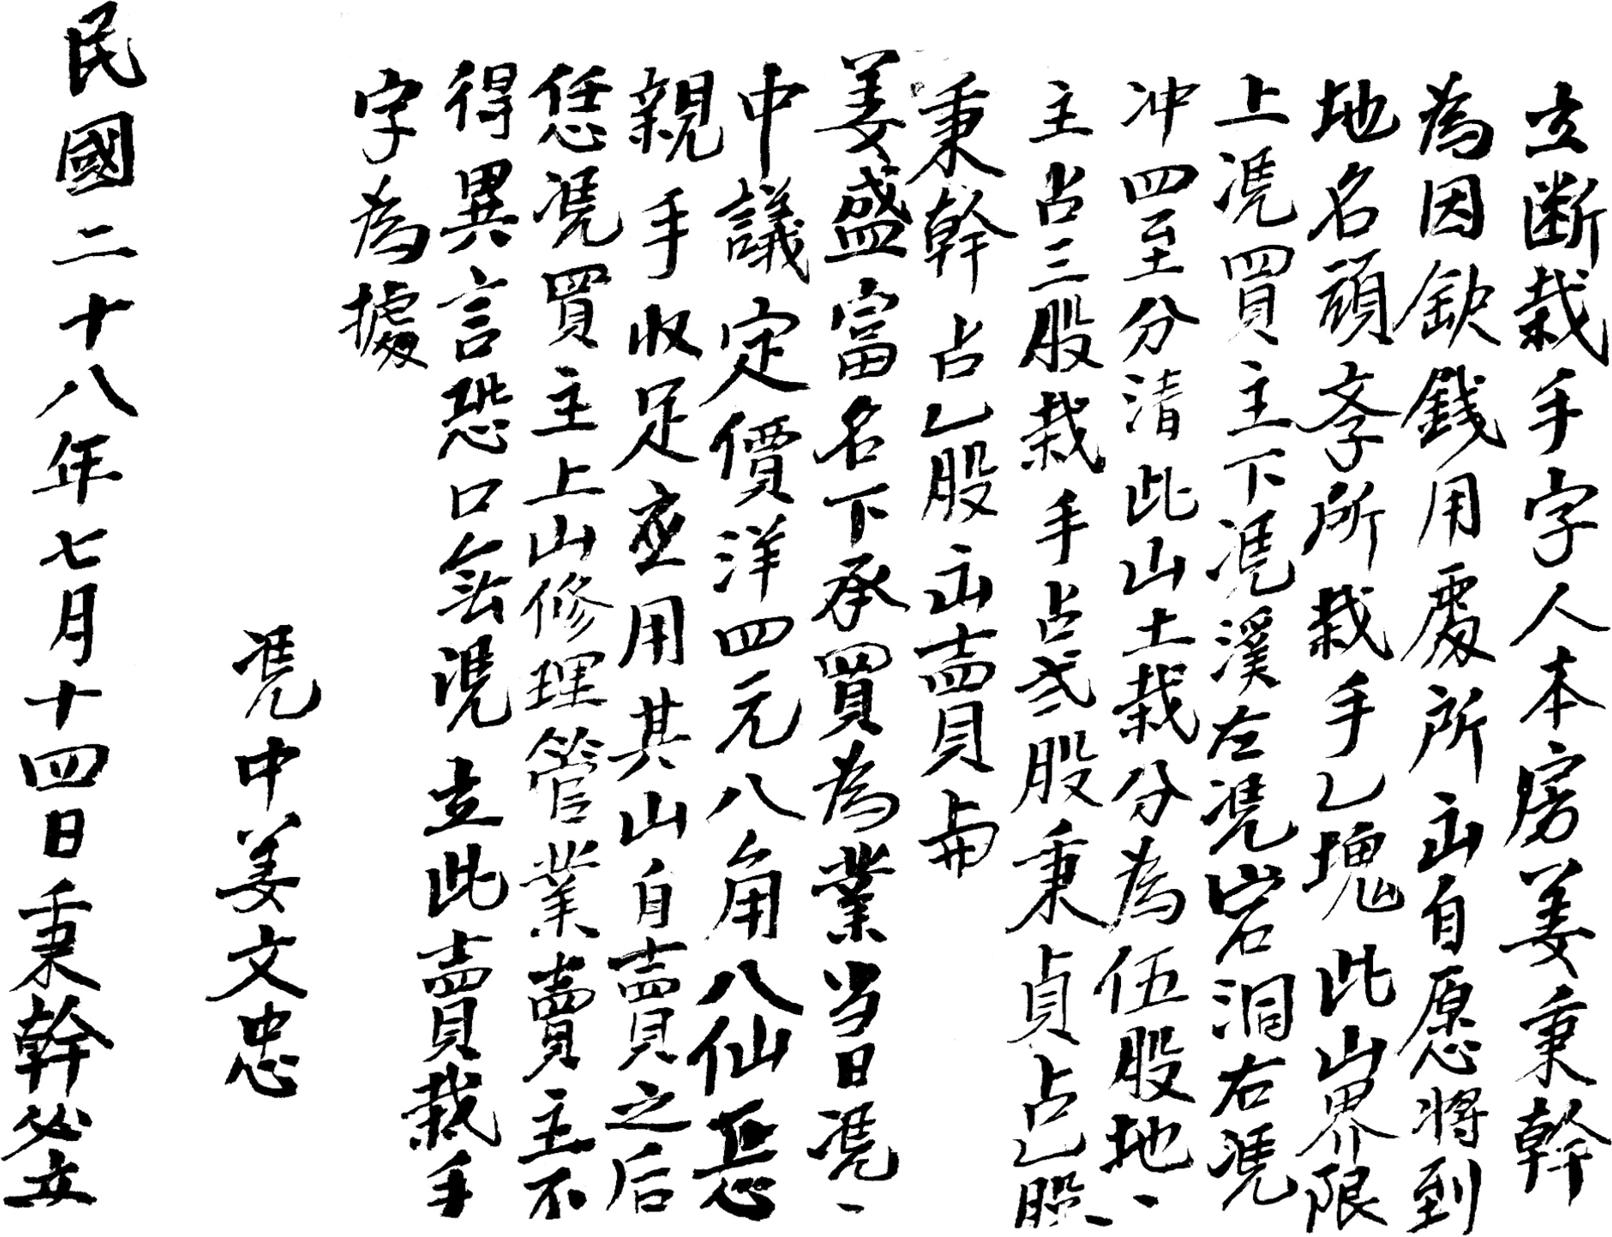 立断栽手字人本房姜秉幹
為因缺錢用處所出自愿將到
地名頭夅所栽手乙塊此山界限
上凴買主下凴溪左凴岩洞右凴
冲四至分清此山土栽分為伍股地、
主占三股栽手占貳股秉貞占乙股、
秉幹占乙股出賣與
姜盛富名下承買為業当日凴、
中議定價洋四元八角八仙
親手收足应用其山自賣之后
恁凴買主上山修理管業賣主不
得異言恐口無凴立此賣栽手
字為據
凴中姜文忠
民國二十八年七月十四日秉幹立